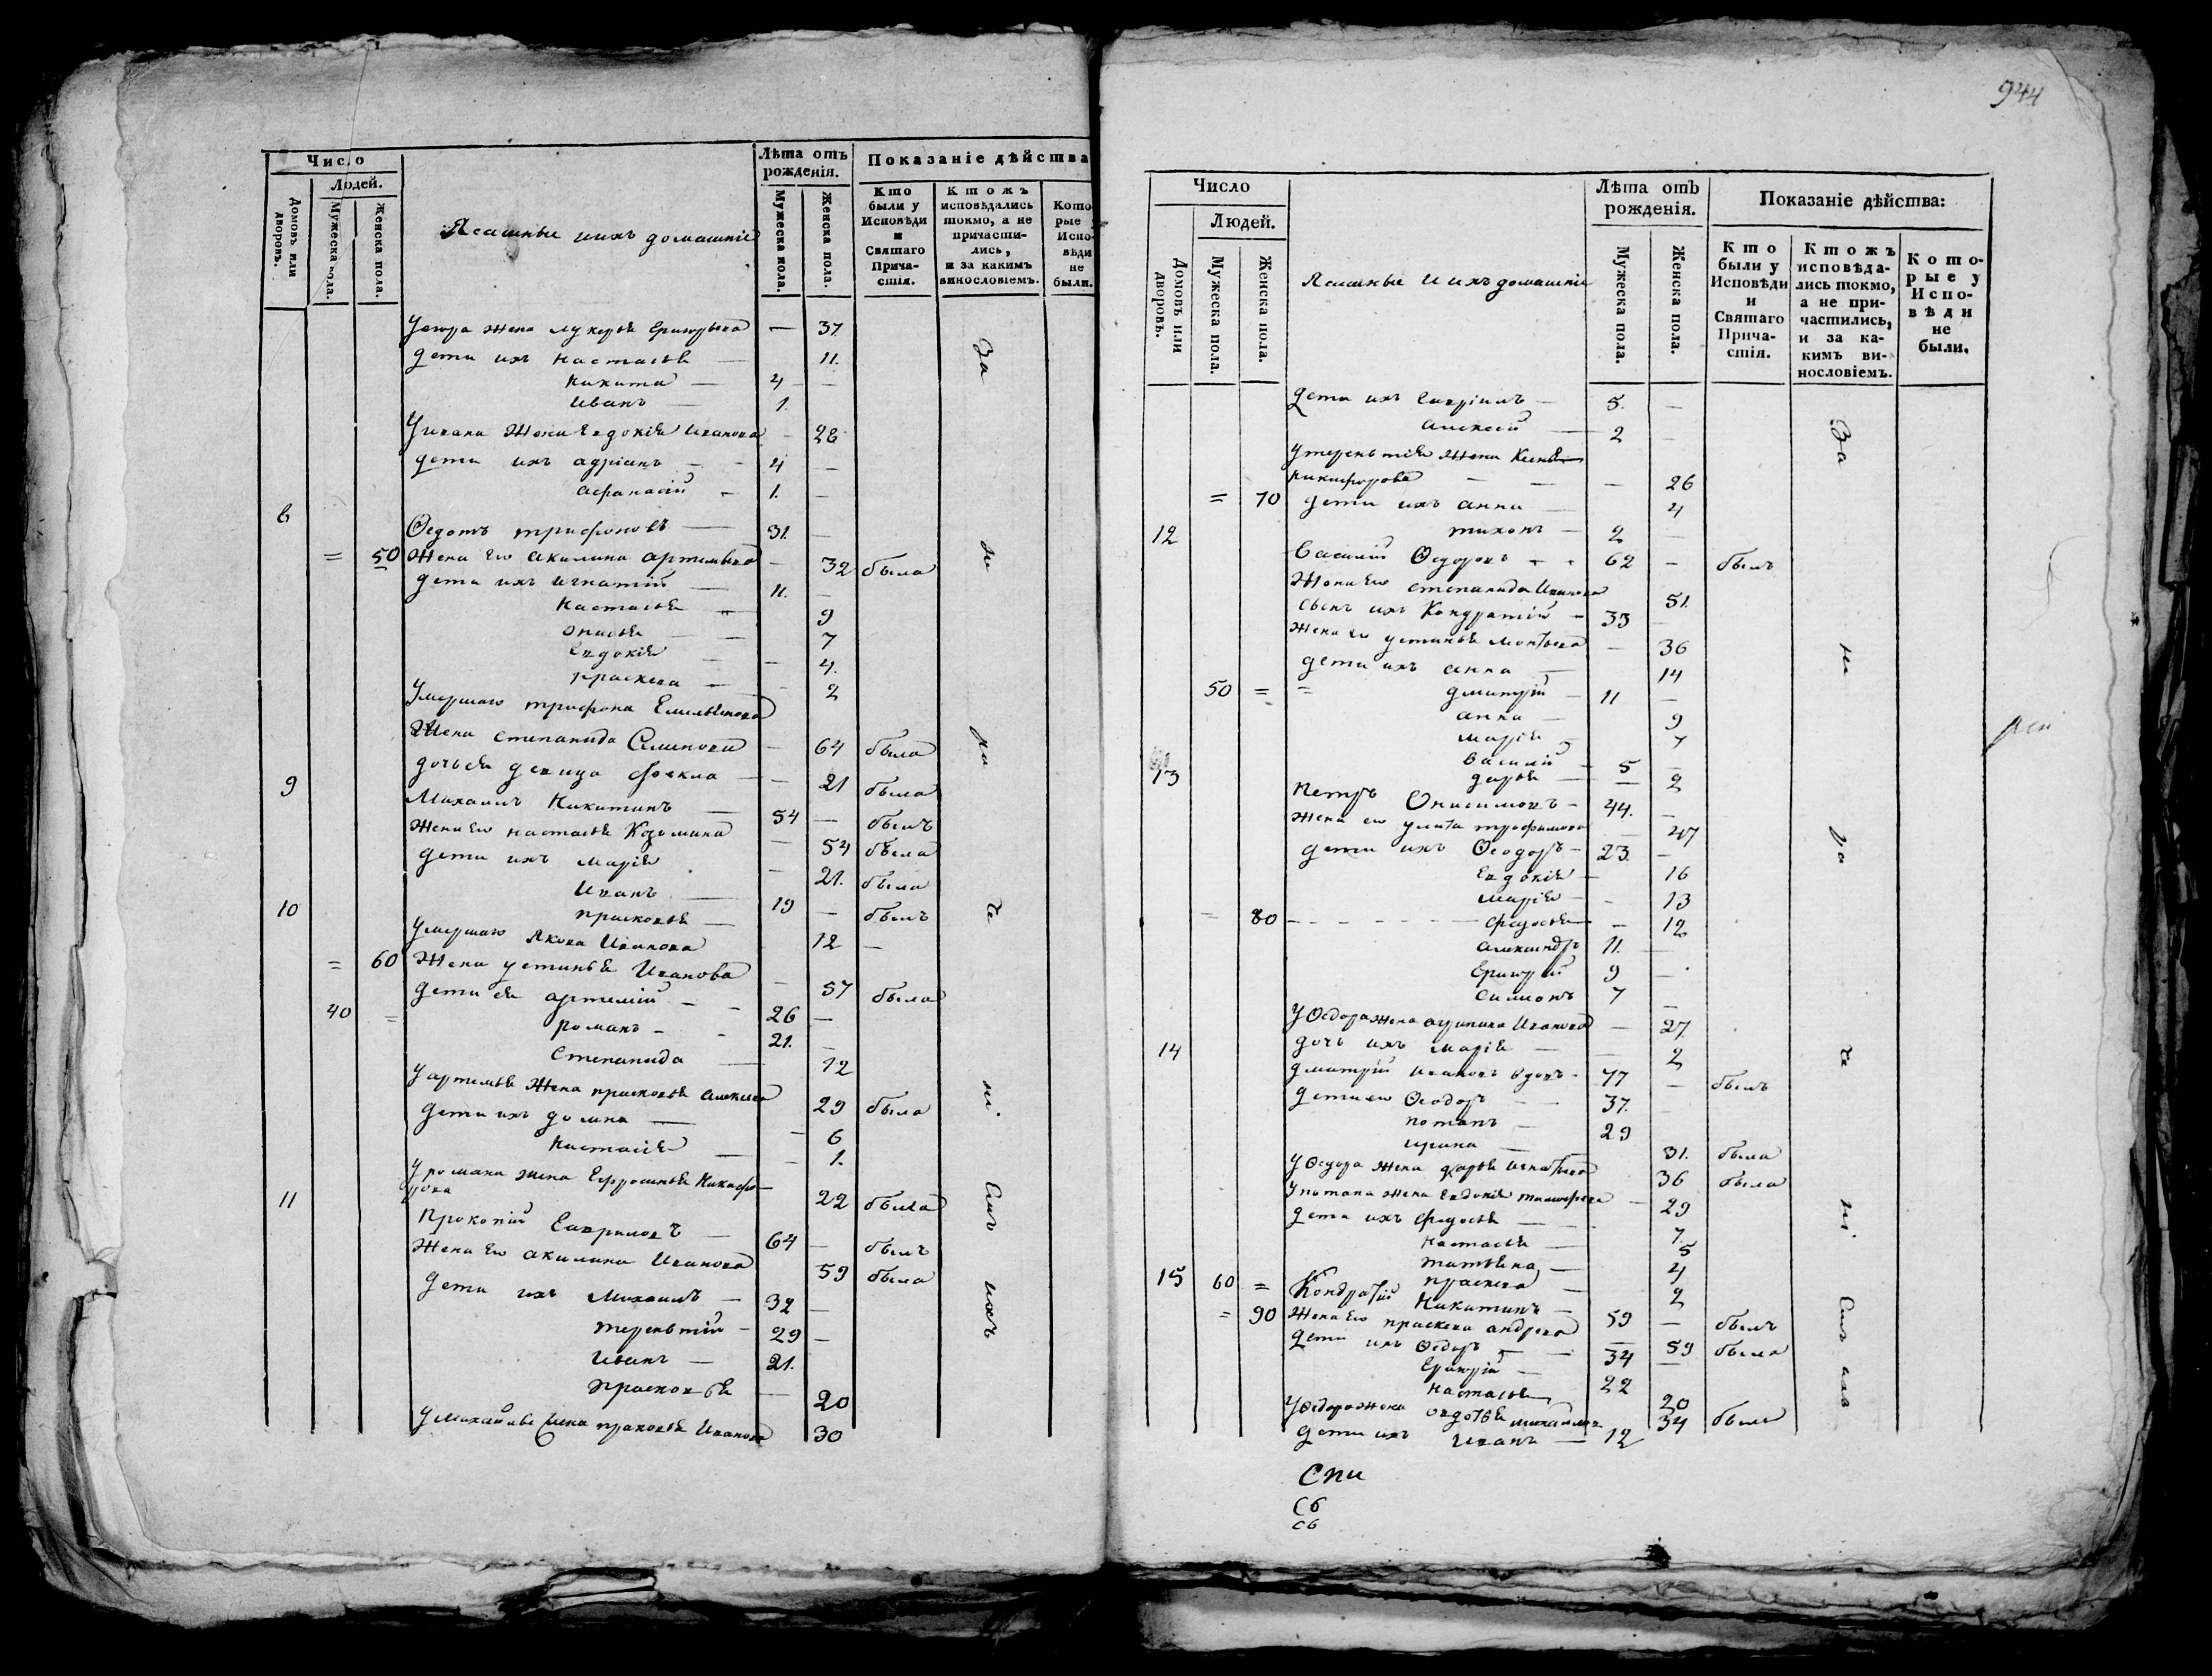 Число
Людей.
Домовъ или дворовъ.
Мужеска пола.
Женска пола.
Ясашные ихъ домашніе
Лѣта отъ рожденія.
Мужеска пола.
Женска пола.
Показаніе дѣйства
Кто были у Исповѣди и Святаго Причастія.
Ктожъ исповѣдались токмо, а не причастились, и за какимъ винословіемъ.
Кото рые у Испо вѣди не были.
жена лукерья Григорьева — 37
дети ихъ настасья — 11.
Никита — 4 —
Иванъ — 1.
Уивана жена Евдокия Иванова — 28
дети ихъ адріанъ — 4 —
афанасій — 1. —
8
Ѳедотъ трифоновъ — 31. —
= 50 Жена его акилина артемьева — 32 была
дети ихъ игнатій — 11. —
настасья — 9
7
Евдокия — 4.
праскева — 2
Умершаго трифона Емельянова
Жена степанида Семенова — 64 была
дочь ея девица фекла — 21 была
9
Михаилъ Никитинъ — 54 — былъ
Жена его настасья Козьмина — 54 была
дети ихъ марія — 21. была
Иванъ — 19 — былъ
10 прасковья — 12 —
Умершаго Якова Иванова
= 60 Жена устинья Иванова — 57 была
дети ея артемій — 26 —
40 = романъ — 21. —
Степанида — 12
Уартемья Жена прасковья алексеева 29 была
дети ихъ домна — 6
настасія — 1.
Уромана жена Ефросинья Никифо
рова 22 была
11
Прокопій Гавриловъ — 64 — былъ
Жена его акилина Иванова 59 была
дети ихъ Михаилъ — 32 —
терентій — 29 —
Иванъ — 21.
Прасковья — 20
Умихайлы жена праковья Иванова 30
За
не
ра
че
ні
емъ
ихъ
944
Число
Людей.
Домовъ или дворовъ.
Мужеска пола.
Женска пола.
Ясашные и ихъ домашніе
Лѣта отъ рожденія.
Мужеска пола.
Женска пола.
Показаніе дѣйства:
Кто были у Исповѣди и Святаго Причастія.
Ктожъ исповѣдались токмо, а не причастились, и за какимъ винословіемъ.
Которые у Исповѣди не были.
дети ихъ Гавріилъ — 5. —
алексей — 2 —
Утерентія жена Ксенья
никифорова — — 26
= 70 дети ихъ анна — 4
12 тихонъ — 2 —
Василій Ѳедоровъ - - 62 — былъ
Жена его степанида Иванова 51.
сынъ ихъ Кондратій — 33 —
жена его устинья — 36
дети ихъ анна — 14
50 = = дмитрій — 11 —
анна — 9
марія — 7
Василій — 5 —
13 дарья — 2
Петръ Онисимовъ — 44. —
жена его улита трофимова — 47
дети ихъ Ѳеодоръ — 23. —
Евдокия — 16
марія — 13
= 80 федосья — 12
александръ 11. —
Григорій 9 —
симионъ 7 —
УѲедора жена агрипина Иванова — 27.
14 дочь ихъ марія — 2
дмитрій ивановъ вдовъ — 77 — былъ
дети его Ѳеодоръ — 37. —
потапъ — 29
ирина — 31. была
УѲедора жена дарья игнатьева 36 была
Употапа жена Евдокия тимофеева — 29
дети ихъ федосья — 7.
настасья — 5
татьяна — 4
праскева — 2
15 60 = Кондратій Никитинъ — 59 — былъ
= 90 Жена его праскева андреева — 59 была
дети ихъ Ѳедоръ — 34 —
Григорій — 22
настасья — 20
УѲедора жена овдотья михайлова 34 была
дети ихъ Иванъ — 12
За
не
ра
че
ні
емъ
Спи
Сб
сб